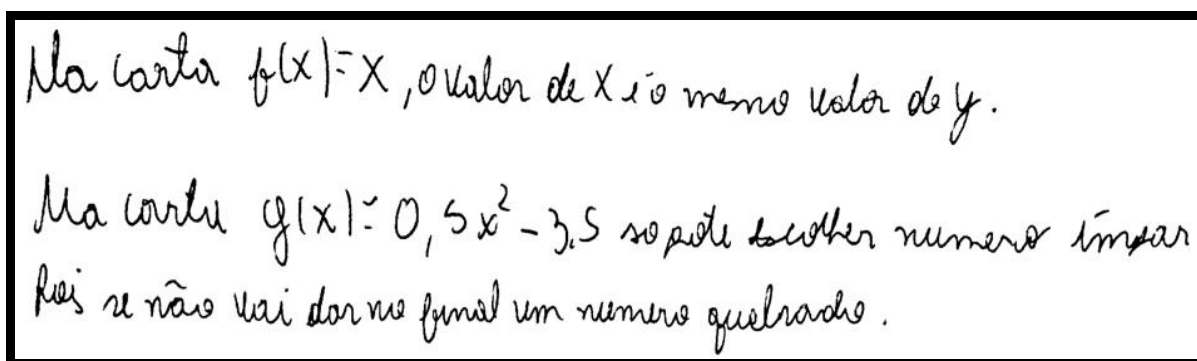 Na carta f(x)=x, o valor de x é o mesmo valor de y.
Na carta g(x)=0,5x²-3,5 so pode escolher numero ímpar
Pois se não vai dar no final um numero quebrado.